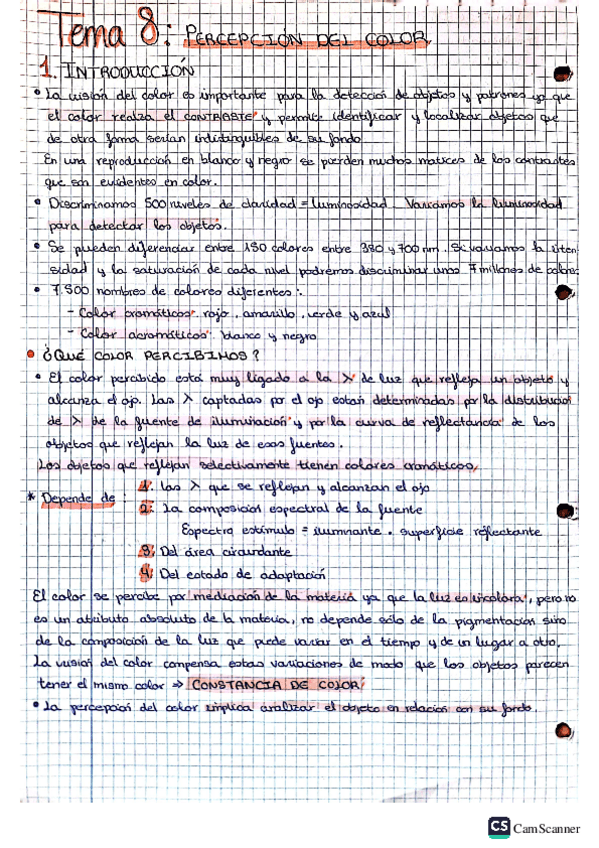 Tema 8: PERCEPCIÓN DEL COLOR
1. INTRODUCCIÓN
• La visión del color es importante para la detección de objetos y patrones ya que
el color realza el CONTRASTE y permite identificar y localizar objetos que
de otra forma serían indistinguibles de su fondo.
En una reproducción en blanco y negro se pierden muchos matices de los contrastes
que son evidentes en color.
• Discriminamos 500 niveles de claridad = luminosidad. Variamos la luminosidad
para detectar los objetos.
• Se pueden diferenciar entre 150 colores entre 380 y 700 nm. Si variamos la inten
sidad y la saturación de cada nivel podremos discriminar unos 7 millones de colores
• 7.500 nombres de colores diferentes:
- Color cromáticos: rojo, amarillo, verde y azul
- Color acromáticos: blanco y negro
• ¿QUÉ COLOR PERCIBIMOS?
• El color percibido está muy ligado a la λ de luz que refleja un objeto y
alcanza el ojo. Las λ captadas por el ojo están determinadas por la distribución
de λ de la fuente de iluminación y por la curva de reflectancia de los
objetos que reflejan la luz de esas fuentes.
Los objetos que reflejan selectivamente tienen colores cromáticos.
* Depende de: 1. Las λ que se reflejan y alcanzan el ojo
2. La composición espectral de la fuente
Espectro estímulo = iluminante . superficie reflectante
3. Del área circundante
4. Del estado de adaptación
El color se percibe por mediación de la materia ya que la luz es incolora, pero no
es un atributo absoluto de la materia, no depende sólo de la pigmentación sino
de la composición de la luz que puede variar en el tiempo y de un lugar a otro.
La visión del color compensa estas variaciones de modo que los objetos parecen
tener el mismo color ⇒ CONSTANCIA DE COLOR
• La percepción del color implica analizar el objeto en relación con su fondo.
CS CamScanner